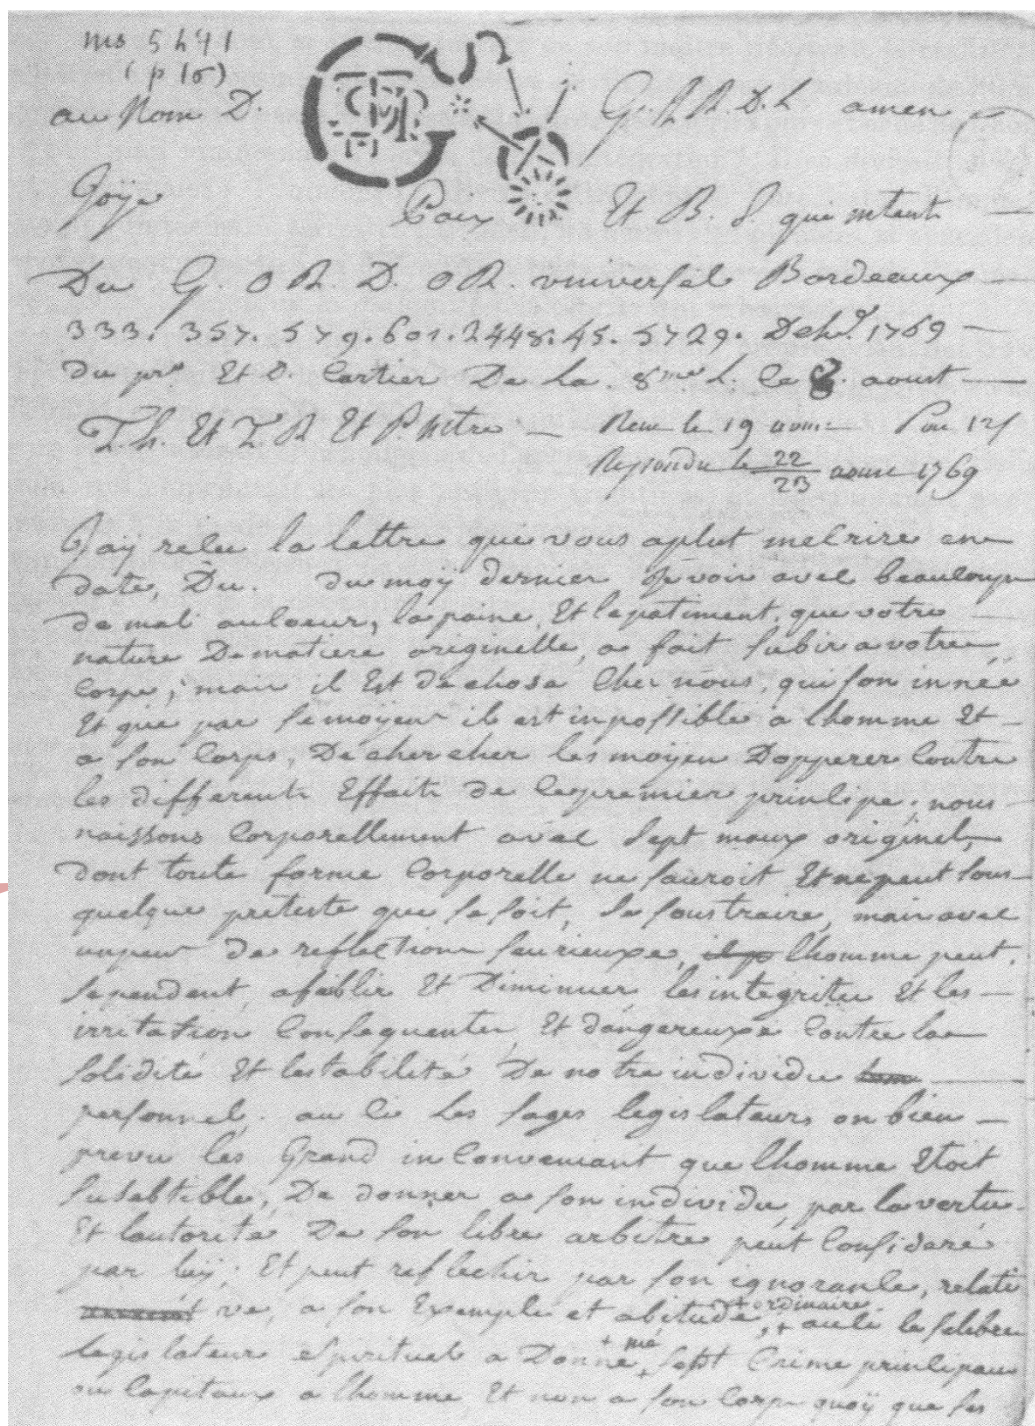 ms 5491
(p 10)
au Nom D. G. A. R. D. L. amen
Joÿe Paix Et B. S. qui mtent
Du G. O R. D. O R. vniversel Bordeaux
333. 357. 579. 601. 2448. 45. 5729. Deh.d 1769
du pr.er Et D. Cartier De La 8.me L. Le 8. aoust
T. h. Et T. R Et P. Mtre Reçu le 19 aoust
Repondu le 22/23 aoust 1769
Jaÿ relu la lettre que vous aplut mecrire en
date, Du. du moÿ dernier Je voir avec beaucoup
de mal aucoeur, la paine, Et lepatiment, que votre
nature De matiere originelle, a fait subir a votre
Corps; mais il Est de chose Cher nous, qui son innée
Et que par se moÿen il est inpossible a lhomme Et
a son Corps, De chercher les moÿen Dopperer Contre
les different Effaits de Cepremier principe; nous
naissons Corporellement avec sept maux originel,
dont toute forme Corporelle ne sauroit Et ne peut sous
quelque preteste que se soit, se soustraire, mais avec
unpeut de reflection seurieuxe, lhomme peut,
sependent, afeblir Et Diminuer, les integrites Et les
irritation Consequentes, Et dangereuxe Contre la
solidité Et lestabilité De notre individu
personnel. au si Les sages legislateurs on bien
prevu les Grand inConveniant que lhomme Etoit
susebtible, De donner a son individu par la vertu
Et lautorité De son libre arbitre peut Consideré
par luÿ; Et peut reflechir par son ignorance, relati
ve, a son Exemple et abitude, + ordinaire. + ausi le selebre
Legislateur spirituel a Donné, + mé + sept Crime principau
ou Capitaux a lhomme Et non a son Corps quoÿ que ses